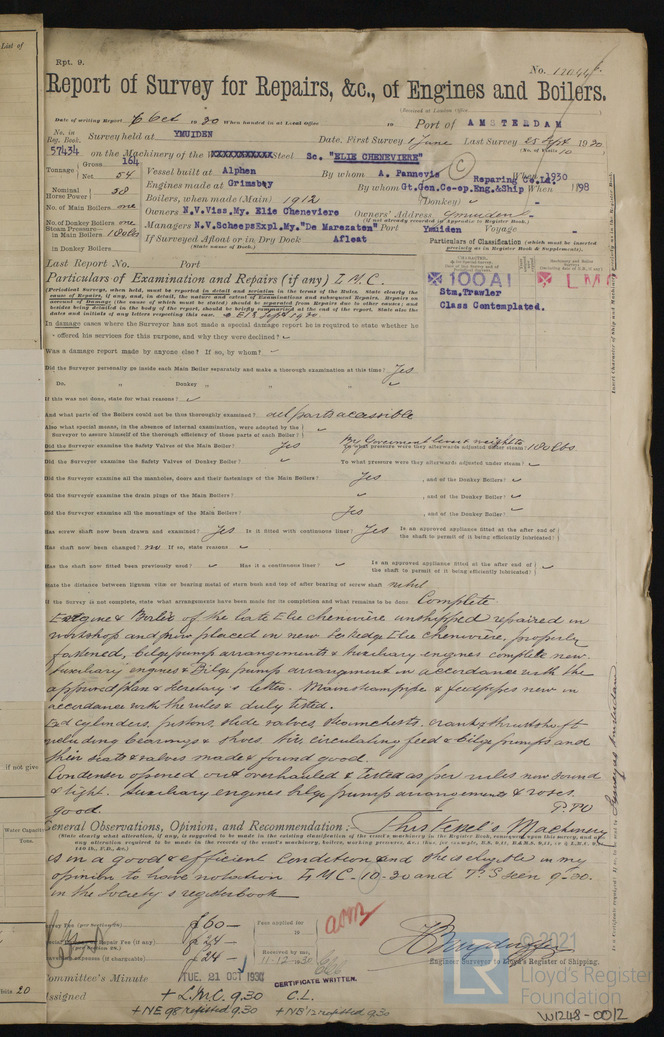 List of
Rpt. 9.
No. 12044
Report of Survey for Repairs, &c., of Engines and Boilers.
(Received at London Office
Date of writing Report 6 Oct 1930 When handed in at Local Office 19 Port of AMSTERDAM
No. in Reg. Book. Survey held at YMUIDEN Date, First Survey June Last Survey 25 Sept 1930
(No. of Visits 10.)
57434 on the Machinery of the Steel Sc. "ELIE CHENEVIERE"
Tonnage Gross 164 Net 54 Vessel built at Alphen By whom A. Pannevis Reparing Co. Ld. When 1930
Engines made at Grimsby By whom Gt.Gen.Co-op.Eng.&Ship When 1898
Nominal Horse Power 38 Boilers, when made (Main) 1912 (Donkey) -
No. of Main Boilers one Owners N.V.Viss.My. Elie Cheneviere Owners' Address Ymuiden
(if not already recorded in Appendix to Register Book.)
No. of Donkey Boilers one Managers N.V.ScheepsExpl.My."De Marezaten" Port Ymuiden Voyage -
Steam Pressure in Main Boilers 180 lbs If Surveyed Afloat or in Dry Dock Afloat
(State name of Dock.)
in Donkey Boilers
Particulars of Classification (which must be inserted precisely as in Register Book & Supplements).
Last Report No. Port
Particulars of Examination and Repairs (if any) L.M.C.
100A1
LMC
Stm.Trawler
Class Contemplated.
(Periodical Surveys, when held, must be reported in detail and seriatim in the terms of the Rules. State clearly the cause of Repairs, if any, and, in detail, the nature and extent of Examinations and subsequent Repairs.
In damage cases where the Surveyor has not made a special damage report he is required to state whether he
offered his services for this purpose, and why they were declined?
Was a damage report made by anyone else? If so, by whom?
Did the Surveyor personally go inside each Main Boiler separately and make a thorough examination at this time? Yes
Do. " Donkey " " " "
If this was not done, state for what reasons?
And what parts of the Boilers could not be thoroughly examined? all parts accessible
Also what special means, in the absence of internal examination, were adopted by the
Surveyor to assure himself of the thorough efficiency of those parts of each Boiler?
Did the Surveyor examine the Safety Valves of the Main Boiler? Yes To what pressure were they afterwards adjusted under steam? 180 lbs.
By Government lever & weights
Did the Surveyor examine the Safety Valves of Donkey Boiler? To what pressure were they afterwards adjusted under steam?
Did the Surveyor examine all the manholes, doors and their fastenings of the Main Boilers? Yes , and of the Donkey Boilers?
Did the Surveyor examine the drain plugs of the Main Boilers? , and of the Donkey Boiler?
Did the Surveyor examine all the mountings of the Main Boilers? Yes , and of the Donkey Boiler?
Has screw shaft now been drawn and examined? Yes Is it fitted with continuous liner? Yes Is an approved appliance fitted at the after end of the shaft to permit of it being efficiently lubricated?
Has shaft now been changed? no If so, state reasons
Has the shaft now fitted been previously used? Has it a continuous liner? Is an approved appliance fitted at the after end of the shaft to permit of it being efficiently lubricated?
State the distance between lignum vitæ or bearing metal of stern bush and top of after bearing of screw shaft
If the Survey is not complete, state what arrangements have been made for its completion and what remains to be done Complete
Engine & Boiler of the late Elie Cheneviere unshipped repaired in
workshop and now placed in new Elie Cheneviere, properly
fastened, bilge pump arrangements & auxiliary engines complete new.
Auxiliary engines & Bilge pump arrangement in accordance with the
approved plan & Secretary's letter. Main steam pipe & feed pipes new in
accordance with the rules & duly tested.
cylinders, pistons, slide valves, steamchests, crank & thrust shaft
including bearings & shoes. Air, circulating feed & bilge pumps and
their seats & valves made & found good.
Condenser opened out overhauled & tested as per rules now sound
& tight. Auxiliary engines bilge pump arrangements & roses
good. P.T.O
General Observations, Opinion, and Recommendation: This vessel's Machinery
is in a good & efficient condition and she is eligible in my
opinion to have notation L M C -10-30 and T.S seen 9-30.
in the Society's registerbook
Survey Fee £60—
Repair Fee (if any) £24—
expenses (if chargeable) £24—
Fees applied for 19
Received by me, 11-12-1930
Engineer Surveyor to Lloyd's Register of Shipping.
Committee's Minute TUE. 21 OCT 1930
CERTIFICATE WRITTEN.
Assigned + L.M.C. 9.30 C.L.
+ NE 98 refitted 9.30 + NB 12 refitted 9.30
if not give
Water Capacity
Tons.
20
© 2021
LR
Lloyd's Register
Foundation
W1248-0012